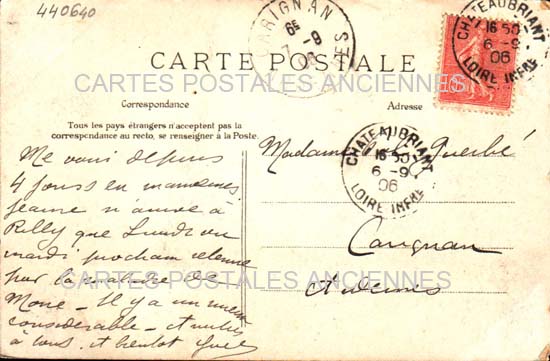 440640
CARIGNAN
6E
7 -9
CARTE POSTALE
CHATEAUBRIANT
16 50
6 -9
06
LOIRE INFRE
10
CARTES POSTALES ANCIENNES
Correspondance
Adresse
Tous les pays étrangers n'acceptent pas la
correspondance au recto, se renseigner à la Poste.
CHATEAUBRIANT
16 50
6 -9
06
LOIRE INFRE
Me voici depuis
4 jours en manœuvres
Jeanne n'arrive à
Rilly que Lundi ou
mardi prochain retenue
par la
Il y a un monde
considerable - Amitiés
à tous. et bientôt
Madame
Carignan
Ardennes
CARTES POSTALES ANCIENNES